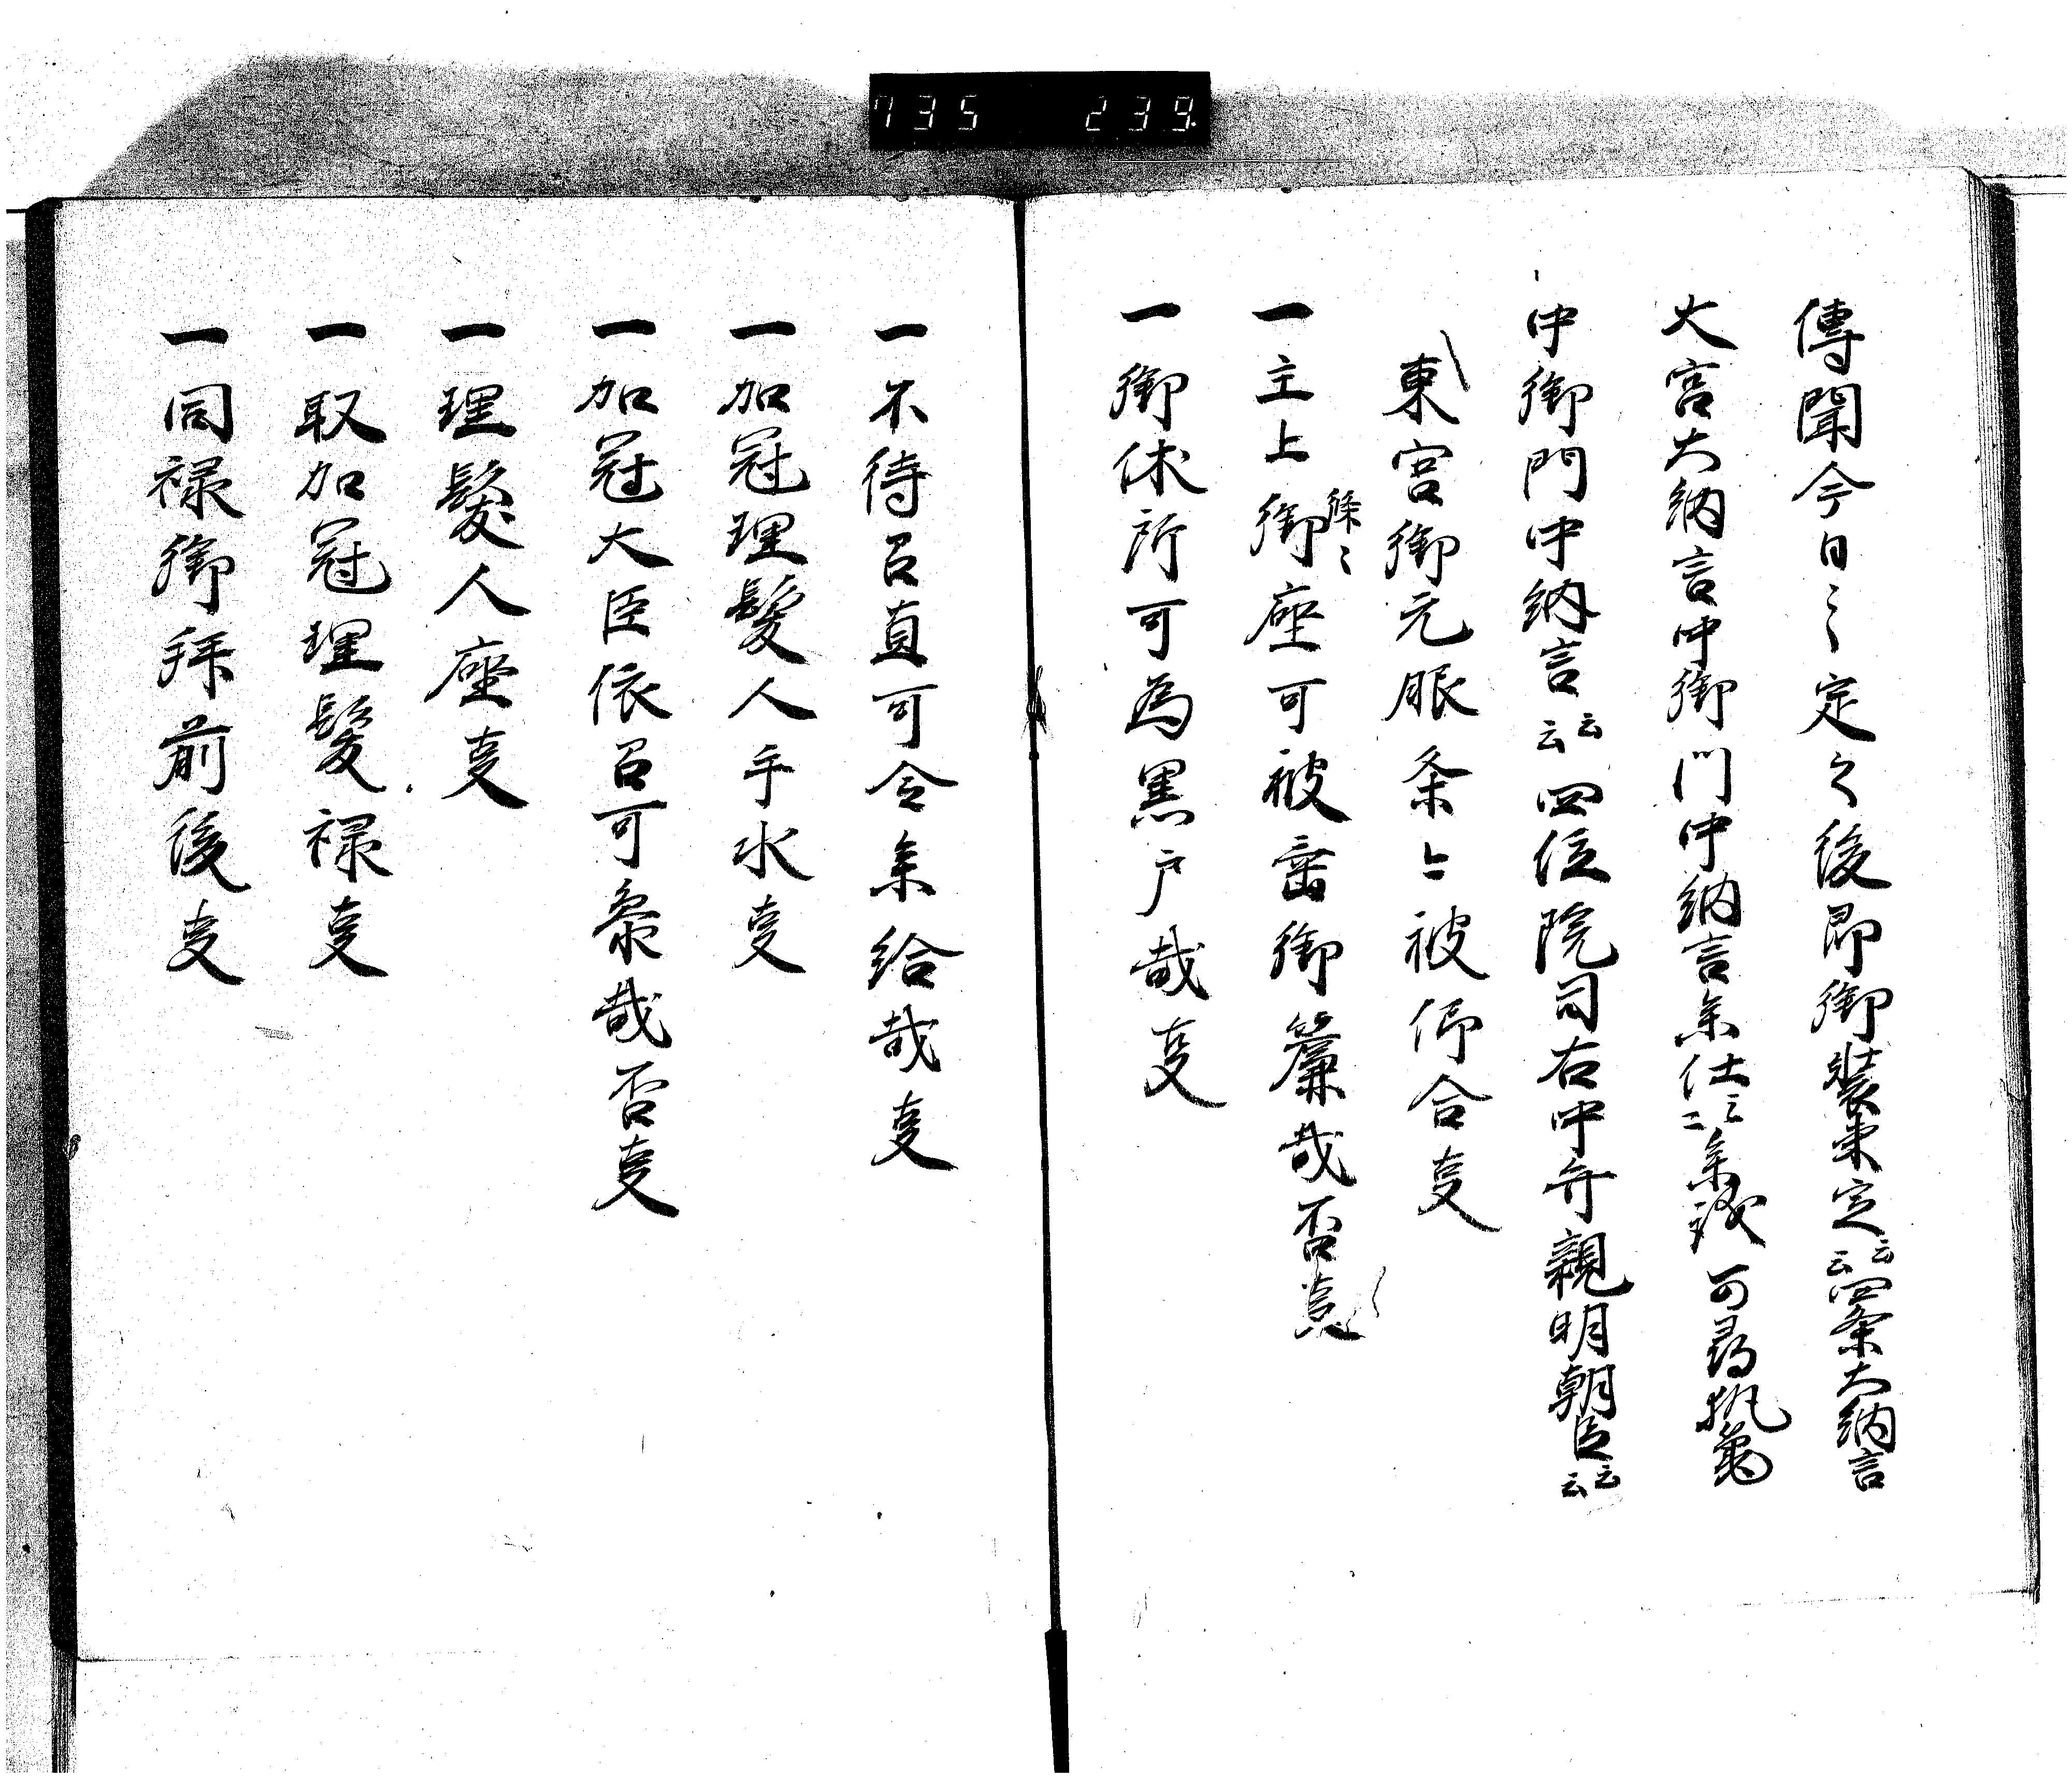 735 239
傳聞今日之定了後即御装束定云云四条大納言
大宮大納言中御門中納言参仕云云参議可尋執筆
中御門中納言云云四位院司右中弁親明朝臣云云
東宮御元服条々被仰合事
一主上御座可被垂御簾哉否事
一御休所可為黒戸哉事
一不待召直可令参給哉事
一加冠理髪人手水事
一加冠大臣依召可参哉否事
一理髪人座事
一取加冠理髪禄事
一同禄御拝前後事